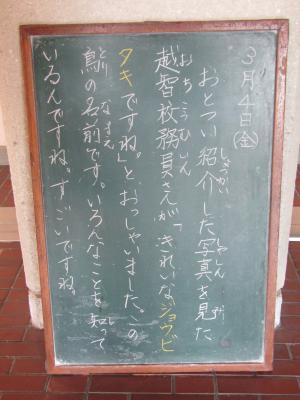 3月4日(金)
おとつい紹介した写真を見た
しょうかい しゃしん み
越智校務員さんが「きれいなジョウビ
おち こうむいん
タキですね」とおっしゃいました。この
鳥の名前です。いろんなことを知って
とり なまえ し
いるんですね。すごいですね。